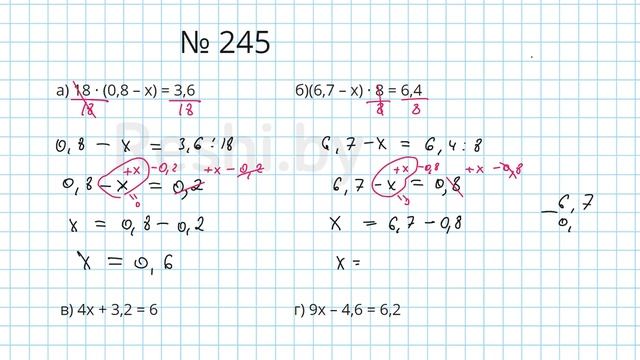 № 245
а) 18 · (0,8 – x) = 3,6
18 18
0,8 – x = 3,6 : 18
+x –0,2 +x – 0,2
0,8 – x = 0,2
"0
x = 0,8 – 0,2
x = 0,6
б)(6,7 – x) · 8 = 6,4
8 8
6,7 – x = 6,4 : 8
+x –0,8 +x –0,8
6,7 – x = 0,8
"0
x = 6,7 – 0,8
x =
– 6,7
0,
в) 4x + 3,2 = 6
г) 9x – 4,6 = 6,2
Reshi.by